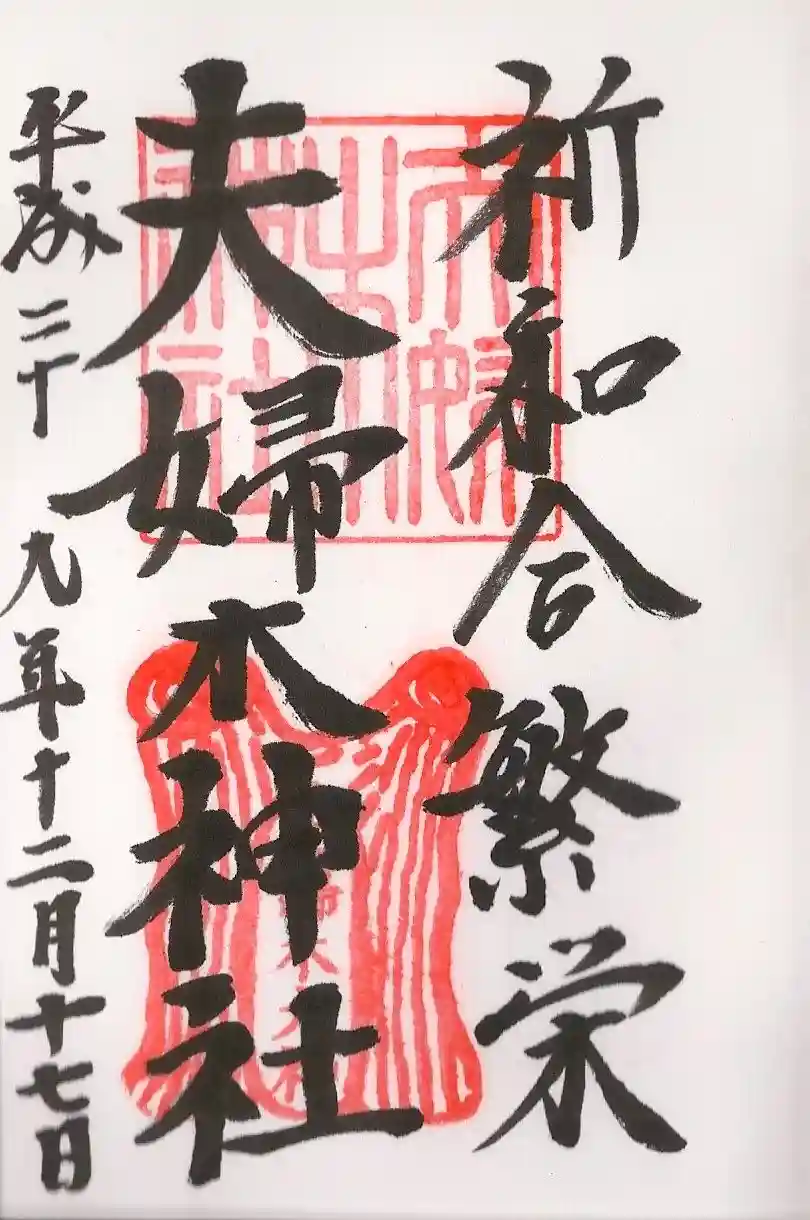 祈和合繁栄
夫婦木神社
平成二十九年十二月十七日
夫婦木神社